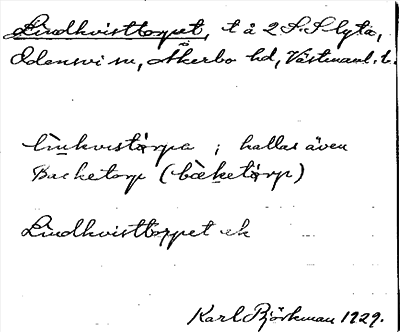 Lindkvisttorpet, t å 2 S. Slyta,
Odensvi sn, Åkerbo hd, Västmanl. l.
li̲nkvistårpa ; kallas även
Backetorp (bäketårp)
Lindkvisttorpet ek
Karl Björkman 1929.